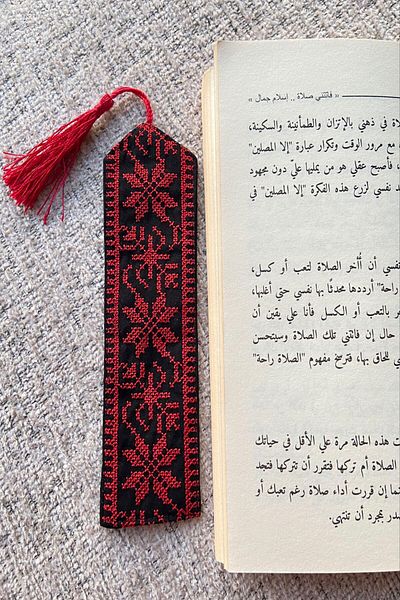 « فاتتني صلاة .. إسلام جمال »
ة في ذهني بالإتزان والطمأنينة والسكينة،
مع مرور الوقت وتكرار عبارة "إلا المصلين"
، فأصبح عقلي هو من يمليها عليّ دون مجهود
د نفسي لزرع هذه الفكرة "إلا المصلين" في
نفسي أن أُأخر الصلاة لتعب أو كسل،
راحة" أرددها محدثًا بها نفسي حتى أغلبها،
بالتعب أو الكسل فأنا على يقين أن
حال إن فاتتني تلك الصلاة وسيتحسن
للحاق بها، فترسخ مفهوم "الصلاة راحة"
ت هذه الحالة مرة على الأقل في حياتك
الصلاة أم تركها فتقرر أن تتركها فتجد
إن قررت أداء صلاة رغم تعبك أو
بمجرد أن تنتهي.